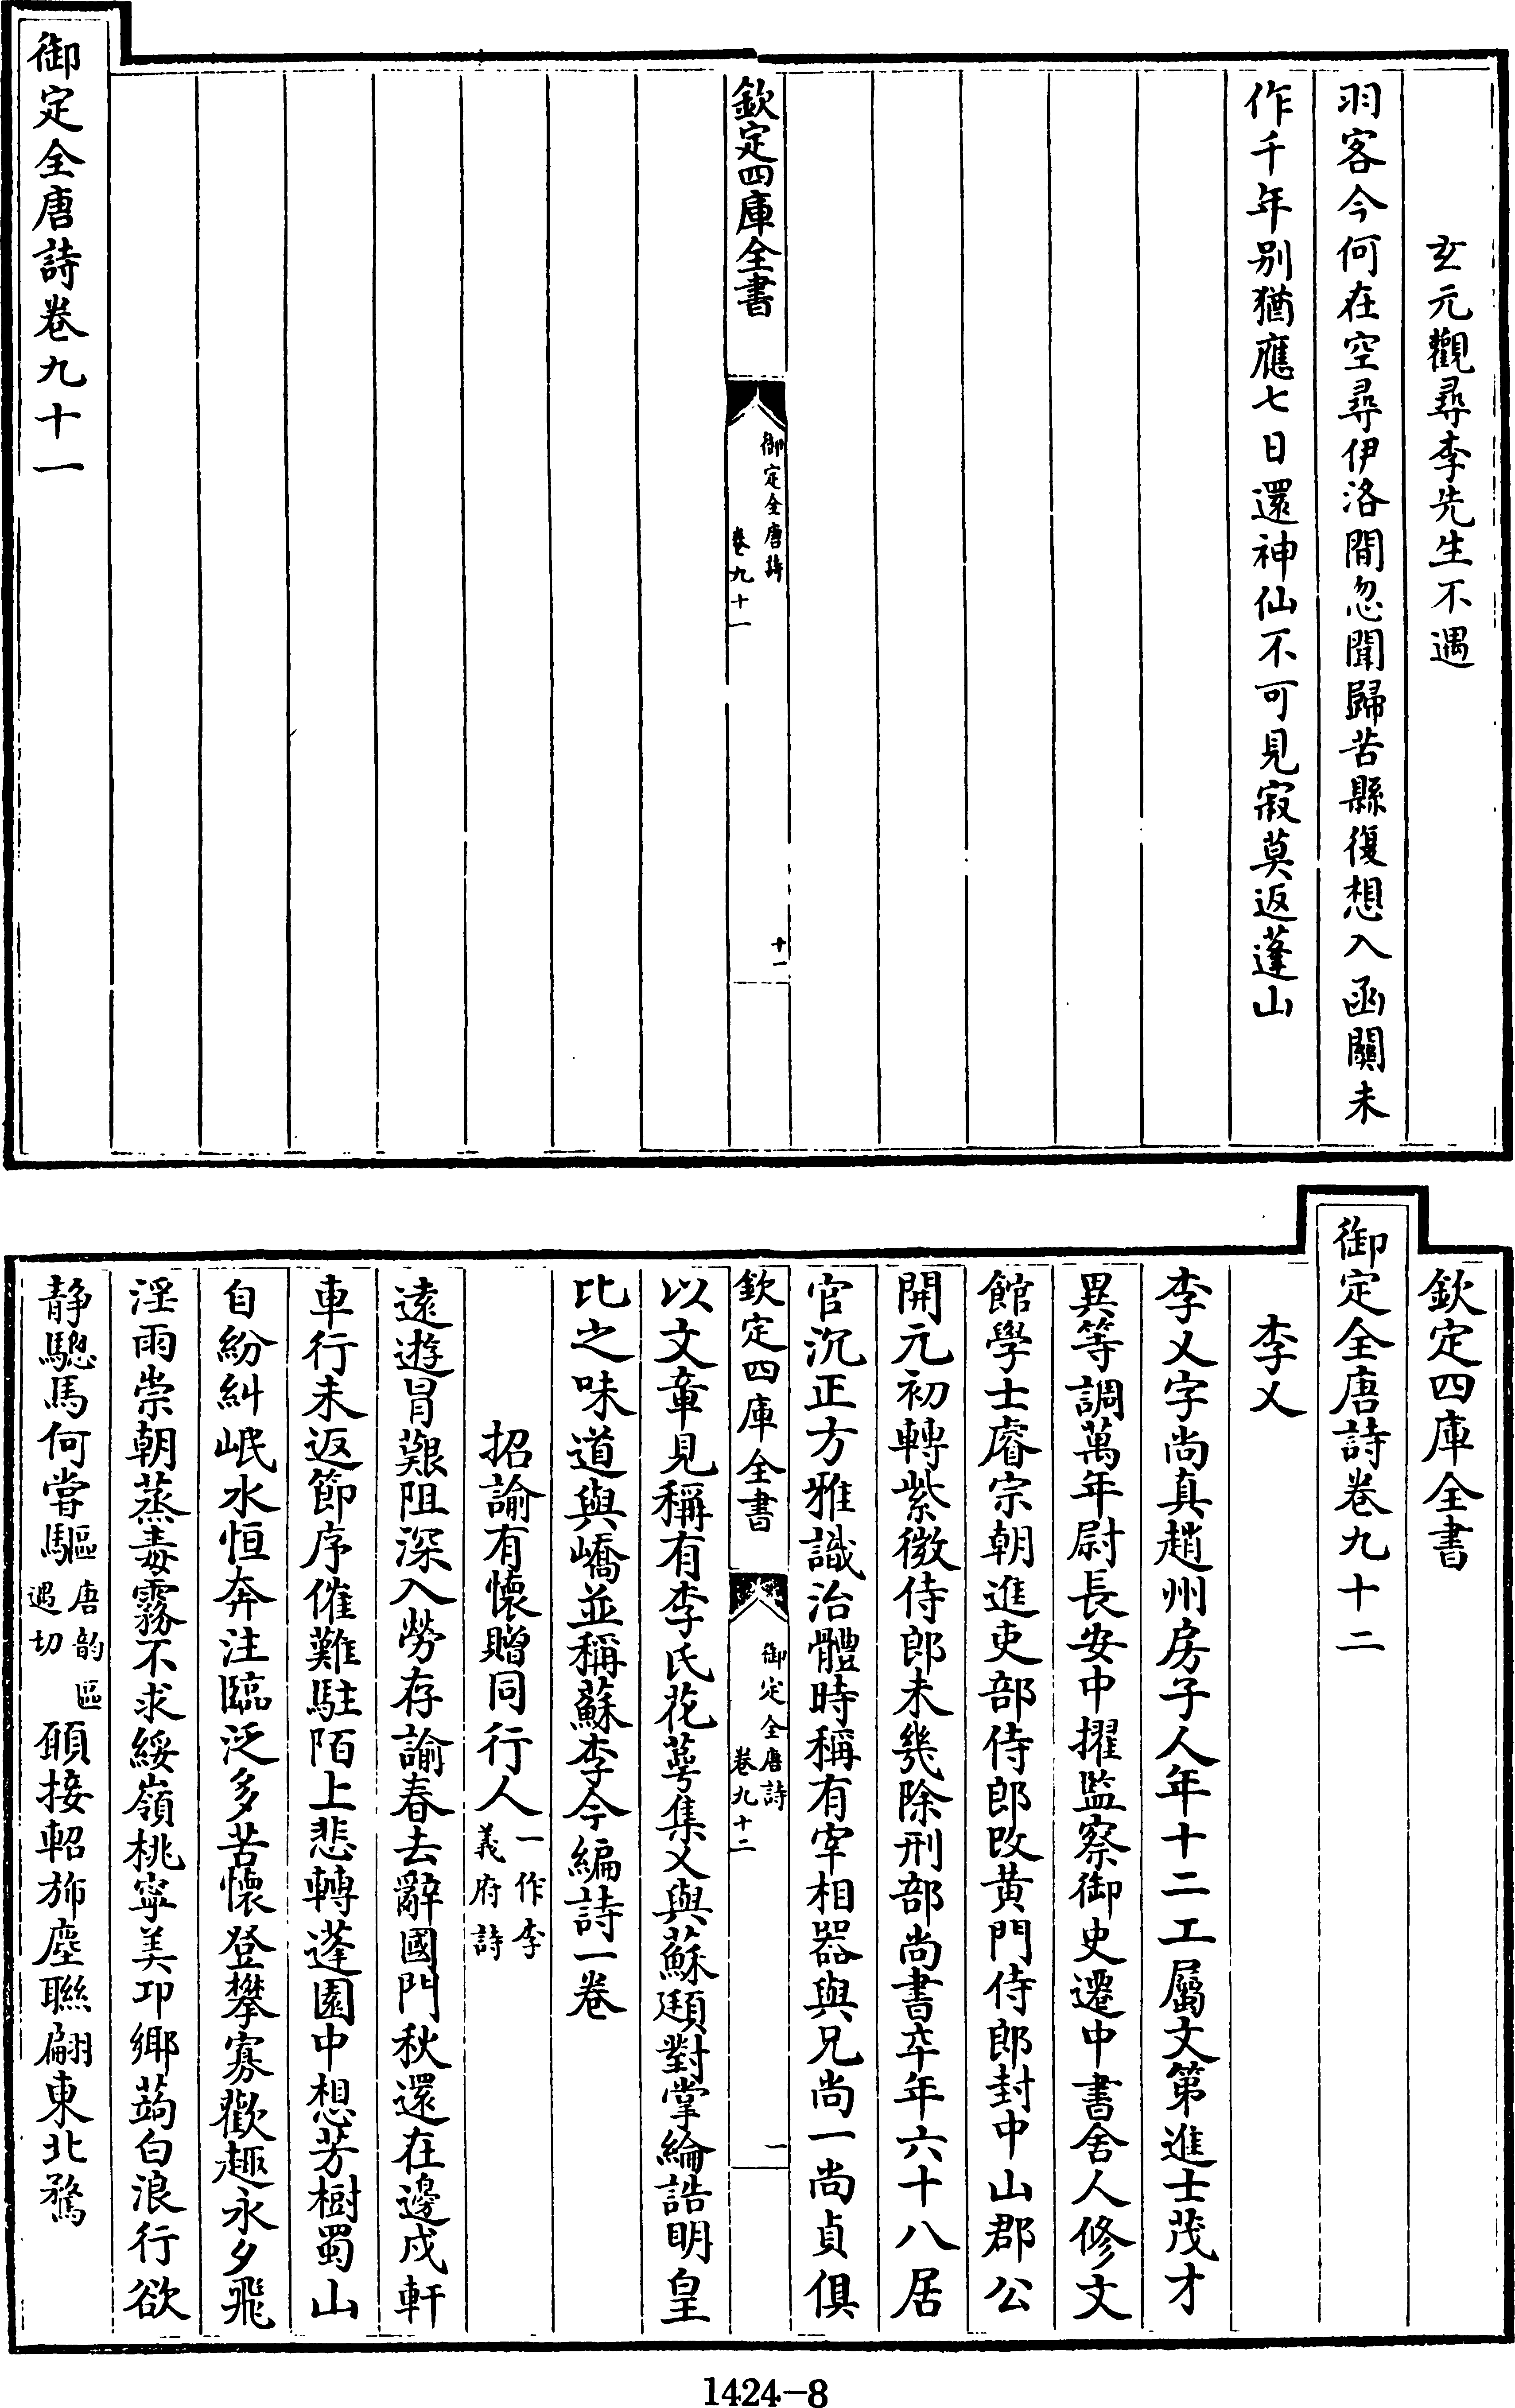 玄元觀尋李先生不遇
羽客今何在空尋伊洛間忽聞歸苦縣復想入函關未
作千年别猶應七日還神仙不可見寂莫返蓬山
欽定四庫全書
御定全唐詩
卷九十一
十一
御定全唐詩卷九十一
欽定四庫全書
御定全唐詩卷九十二
李乂
李乂字尚真趙州房子人年十二工屬文第進士茂才
異等調萬年尉長安中擢監察御史遷中書舍人修文
館學士睿宗朝進吏部侍郎改黄門侍郎封中山郡公
開元初轉紫微侍郎未幾除刑部尚書卒年六十八居
官沉正方雅識治體時稱有宰相器與兄尚一尚貞俱
欽定四庫全書
御定全唐詩
卷九十二
一
以文章見稱有李氏花萼集乂與蘇頲對掌綸誥明皇
比之味道與嶠並稱蘇李今編詩一卷
招諭有懷贈同行人一作李義府詩
遠遊冒艱阻深入勞存諭春去辭國門秋還在邊戍軒
車行未返節序催難駐陌上悲轉蓬園中想芳樹蜀山
自紛糾岷水恒奔注臨泛多苦懷登攀寡歡趣永夕飛
淫雨崇朝蒸毒霧不求綏嶺桃寧美邛鄉蒟白浪行欲
静驄馬何嘗驅唐韵區遇切願接軺旆塵聯翩東北騖
1424-8